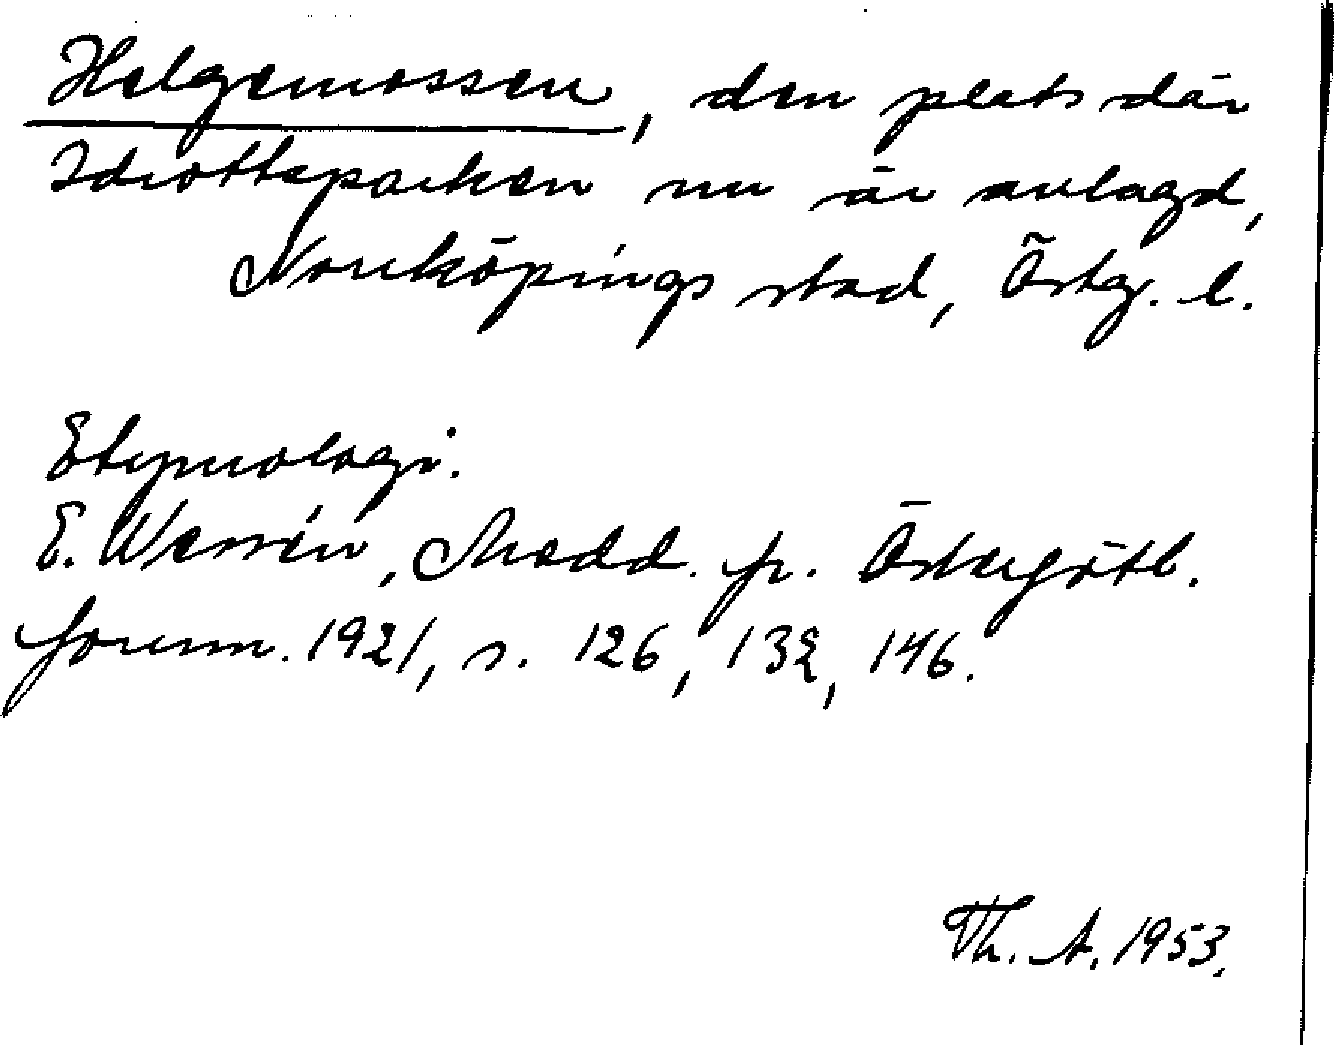 Helgemossen, den plats där
Idrottsparken nu är anlagd,
Norrköpings stad, Östg. l.
Etymologi.
E. Wessén, Medd. fr. Östergötl.
fornm. 1921, s. 126, 132, 146.
Th. A. 1953.